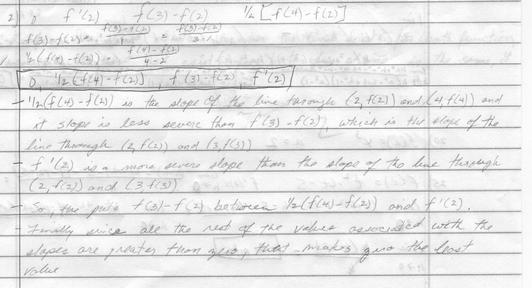 2) 0 f'(2) f(3)-f(2) 1/2 [f(4)-f(2)]
f(3)-f(2) = f(3)-f(2)/1 = f(3)-f(2)/3-2
1/2 (f(4)-f(2)) = f(4)-f(2)/4-2
0, 1/2(f(4)-f(2)), f(3)-f(2), f'(2)
- 1/2(f(4)-f(2)) is the slope of the line through (2, f(2)) and (4, f(4)) and
it slope is less severe than f(3)-f(2), which is the slope of the
line through (2, f(2)) and (3, f(3))
- f'(2) is a more severe slope than the slope of the line through
(2, f(2)) and (3, f(3))
- So, the puts f(3)-f(2) between 1/2(f(4)-f(2)) and f'(2).
- Finally since all the rest of the values associated with the
slopes are greater than zero, that makes zero the least
value